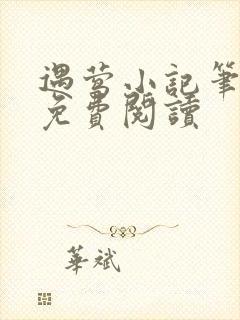 遇萤小記筆
免費閱讀
華斌